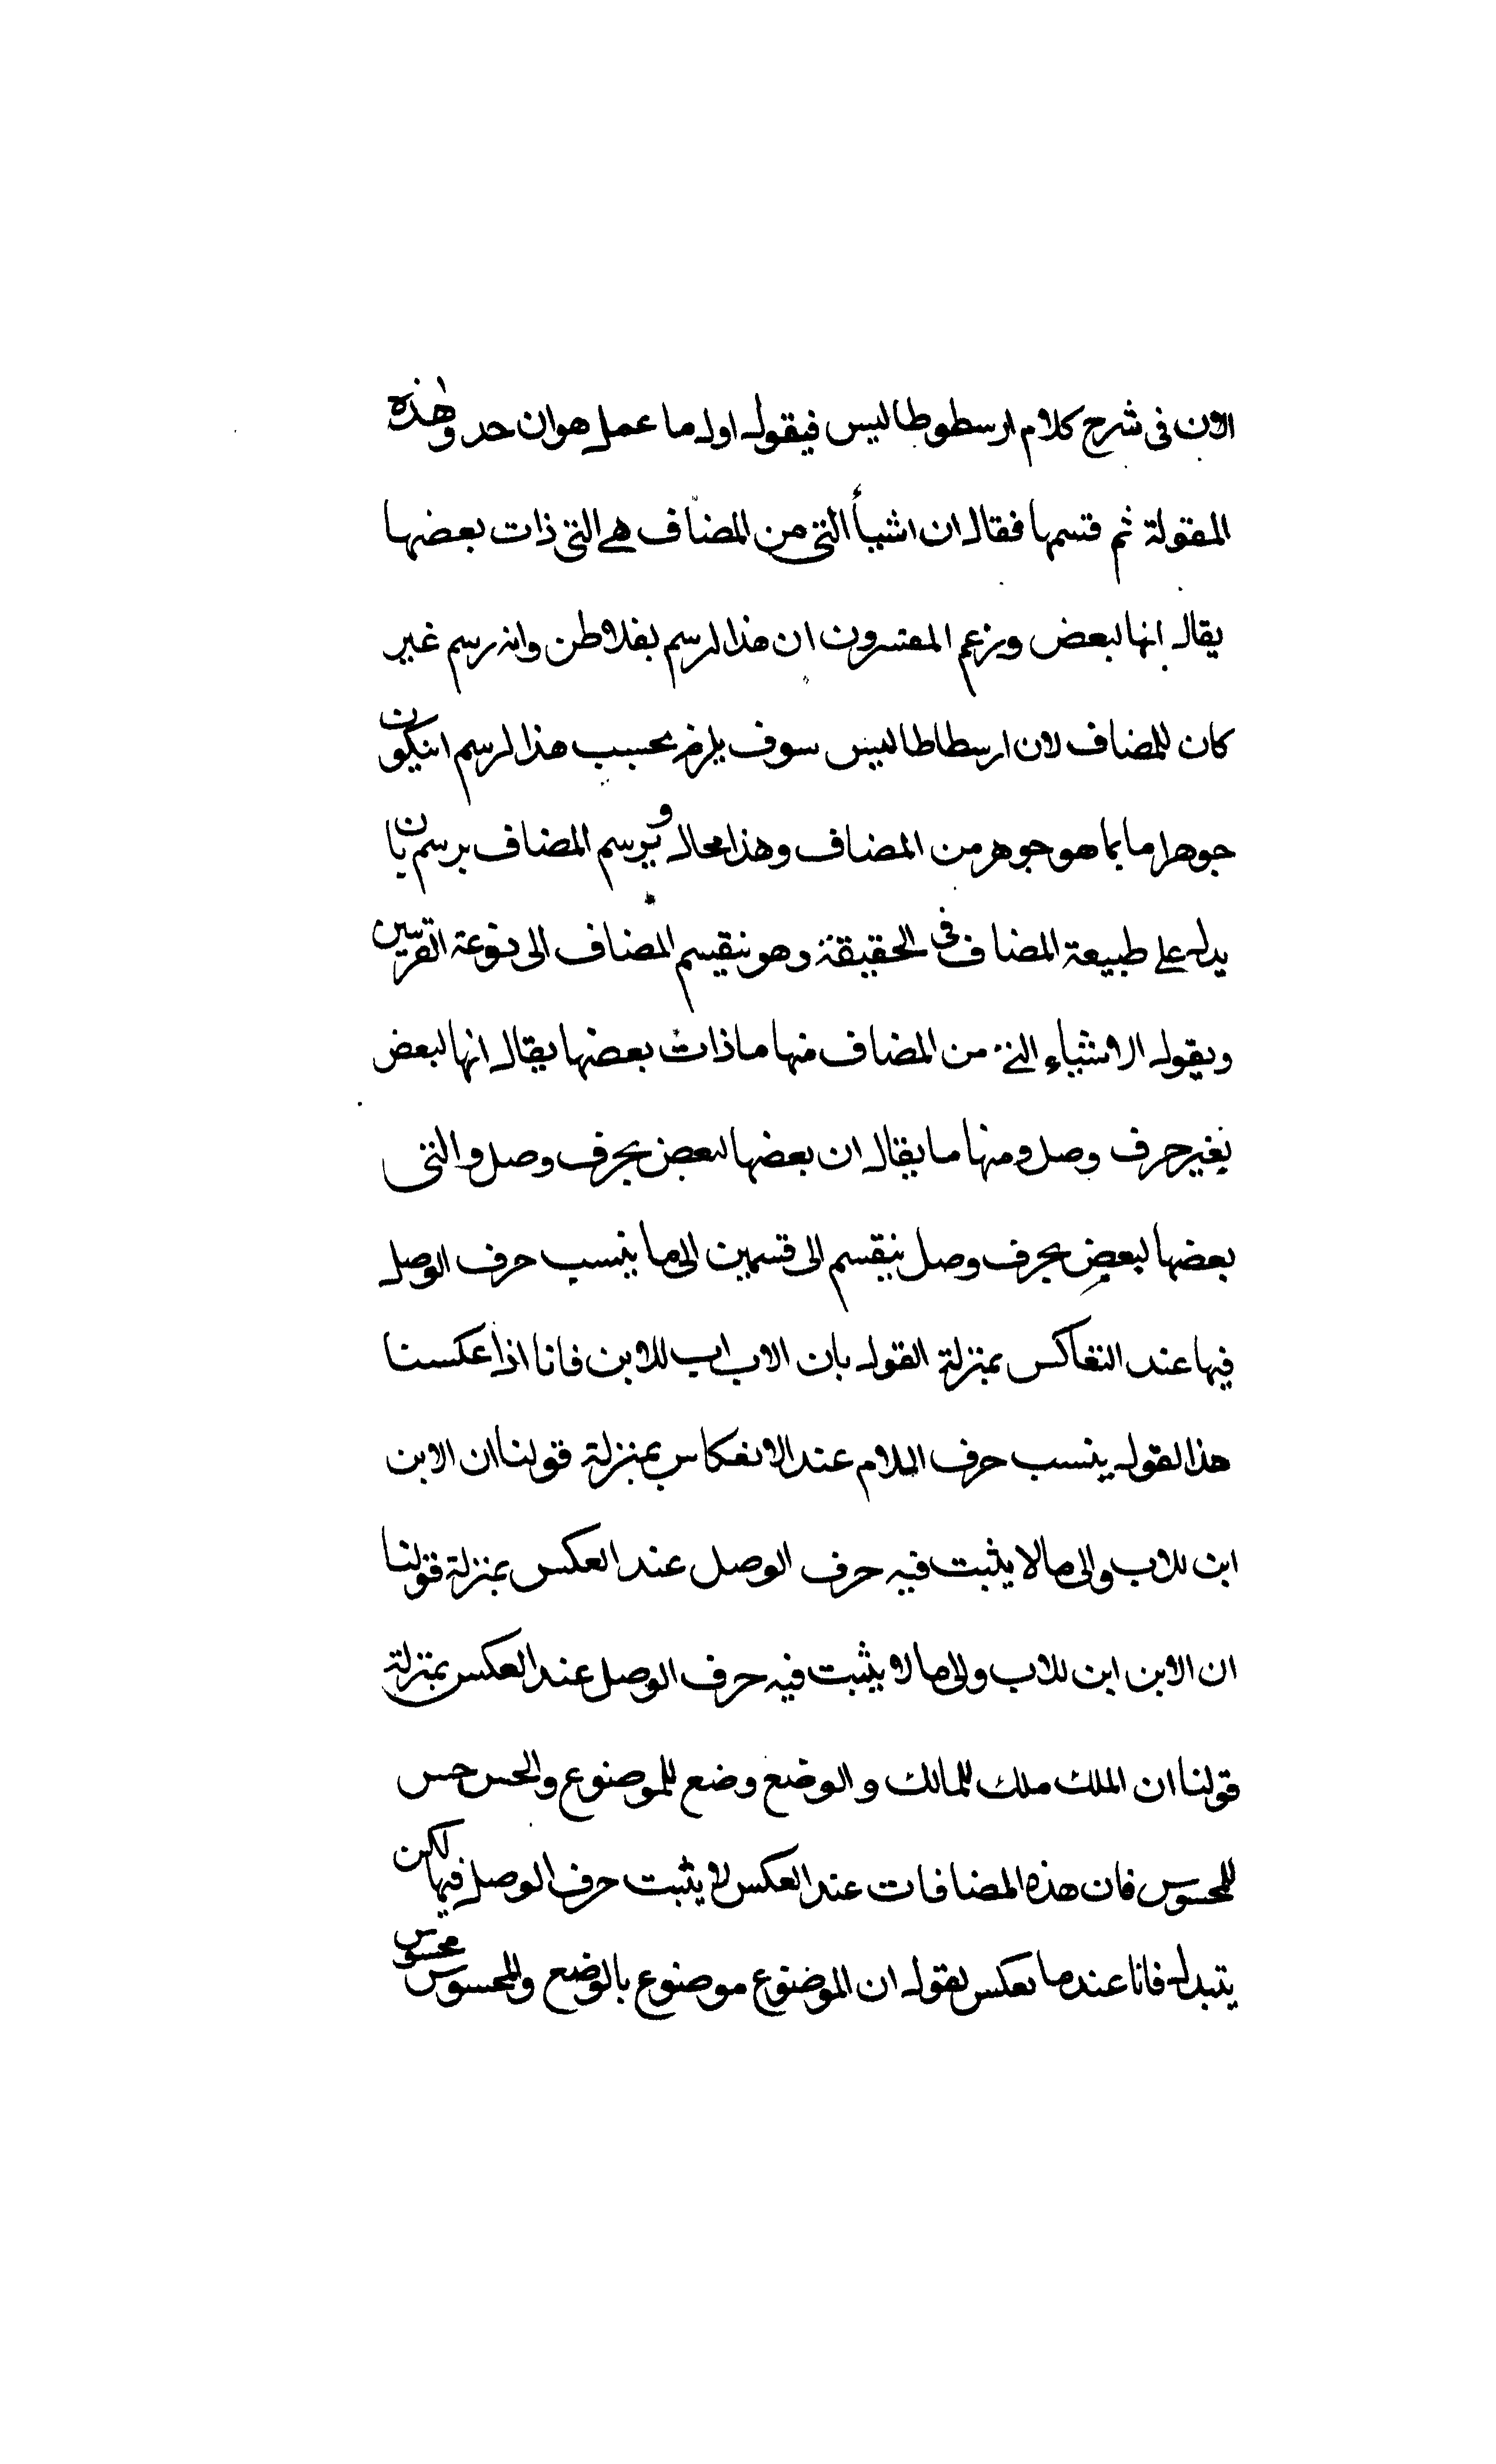 الان فى شرح كلام ارسطوطاليس فيقول اول ما عمل هو ان حد وهذه
المقولة ثم قسمها فقال ان اشيأ التى من المضاف هى التى ذات بعضها
يقال انها لبعض ويزعم المفسرون ان هذا لرسم بفلاطن وانه رسم غير
كان للمضاف لان ارسطاطاليس سوف يلزمه بحسب هذا لرسم انيكون
جوهرا ما بما هو جوهر من المضاف وهذا محال ويرسم المضاف برسم بان
يدل على طبيعة المضاف فى الحقيقة وهو ينقيسم المضاف الى نوعة
ويقول الاشياء التى من المضاف منها ما ذات بعضها يقال انها لبعض
بغير حرف وصل ومنها ما يقال ان بعضها لبعض بحرف وصل والتى
بعضها لبعض بحرف وصل ينقسم الى قسمين الى ما ينسب حرف الوصل
فيها عند التعاكس بمنزلة القول بان الاب اب للابن فانا اذا عكسنا
هذا لقول ينسب حرف اللام عند الانعكاس بمنزلة قولنا ان الابن
ابن للاب والى ما لا يثبت فيه حرف الوصل عند العكس بمنزلة قولنا
ان الابن ابن للاب والى ما لا يثبت فيه حرف الوصل عند العكس بمنزلة
قولنا ان الملك ملك للمالك والوضع وضع للموضوع والحس حس
للمحسوس فان هذه المضافات عند العكس لا يثبت حرف الوصل فيها لكن
يتبدل فانا عندما نعكس نقول ان الموضوع موضوع بالوضع والمحسوس محسوس